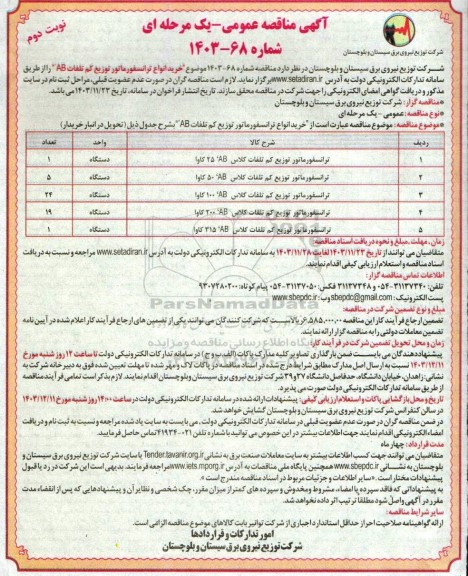 آگهی مناقصه عمومی-یک مرحله ای
شماره ۶۸-۱۴۰۳
نوبت دوم
شرکت توزیع نیروی برق سیستان و بلوچستان
شرکت توزیع نیروی برق سیستان و بلوچستان در نظر دارد مناقصه شماره ۶۸-۱۴۰۳ موضوع "خرید انواع ترانسفورماتور توزیع کم تلفات AB" را از طریق
سامانه تدارکات الکترونیکی دولت به آدرس www.setadiran.ir برگزار نماید. لازم است مناقصه گران در صورت عدم عضویت قبلی، مراحل ثبت نام در سایت
مذکور و دریافت گواهی امضای الکترونیکی را جهت شرکت در مناقصه محقق سازند. تاریخ انتشار فراخوان در سامانه، تاریخ ۱۴۰۳/۱۱/۲۳ می باشد.
*مناقصه گزار: شرکت توزیع نیروی برق سیستان و بلوچستان
*نوع مناقصه: عمومی -یک مرحله ای
*موضوع مناقصه: موضوع مناقصه عبارت است از "خرید انواع ترانسفورماتور توزیع کم تلفات AB" بشرح جدول ذیل (تحویل در انبار خریدار)
ردیف شرح کالا واحد تعداد
۱ ترانسفورماتور توزیع کم تلفات کلاس "AB" ۲۵ کاوا دستگاه ۱
۲ ترانسفورماتور توزیع کم تلفات کلاس "AB" ۵۰ کاوا دستگاه ۵
۳ ترانسفورماتور توزیع کم تلفات کلاس "AB" ۱۰۰ کاوا دستگاه ۲۴
۴ ترانسفورماتور توزیع کم تلفات کلاس "AB" ۲۰۰ کاوا دستگاه ۱۹
۵ ترانسفورماتور توزیع کم تلفات کلاس "AB" ۳۱۵ کاوا دستگاه ۱
زمان، مهلت، مبلغ و نحوه دریافت اسناد مناقصه:
متقاضیان می توانند از تاریخ ۱۴۰۳/۱۱/۲۳ لغایت ۱۴۰۳/۱۱/۲۸ به سامانه تدارکات الکترونیکی دولت به آدرس www.setadiran.ir مراجعه و نسبت به دریافت
اسناد مناقصه و استعلام ارزیابی کیفی اقدام نمایند.
اطلاعات تماس مناقصه گزار:
تلفن: ۳۱۱۳۷۳۴۰-۰۵۴ و ۳۱۱۳۷۳۴۸ فکس: ۳۱۱۳۷۰۵۰-۰۵۴ پیام کوتاه: ۹۳۰۷۲۸۰۲۰۰
پست الکترونیک: sbepdc@gmail.com وب: www.sbepdc.ir
مبلغ و نوع تضمین شرکت در مناقصه:
تضمین ارجاع فرآیند کار این مناقصه ۵،۵۸۵،۰۰۰،۰۰۰ ریال است که شرکت کنندگان می توانند یکی از تضمین های ارجاع فرآیند کار اعلام شده در آیین نامه
تضمین معاملات دولتی را به مناقصه گزار ارائه نمایند.
زمان و محل تحویل تضمین شرکت در فرآیند کار:
پیشنهاددهندگان می بایست ضمن بارگذاری تصاویر کلیه مدارک پاکات (الف، ب و ج) در سامانه تدارکات الکترونیکی دولت تا ساعت ۱۲ روز شنبه مورخ
۱۴۰۳/۱۲/۱۱ نسبت به ارسال اصل مدارک مطابق شرایط درج شده در اسناد مناقصه در پاکات لاک و مهر شده تا مهلت تعیین شده فوق به دبیرخانه شرکت به
نشانی: زاهدان، خیابان دانشگاه، حدفاصل دانشگاه ۳۷ و ۳۹ شرکت توزیع نیروی برق سیستان و بلوچستان اقدام نمایند. لازم بذکر است تمامی فرآیند مناقصه
از طریق سامانه تدارکات الکترونیکی دولت صورت می پذیرد.
تاریخ و محل بازگشایی پاکات و استعلام ارزیابی کیفی: پیشنهادات ارائه شده در سامانه تدارکات الکترونیکی دولت در ساعت ۱۴:۰۰ روز شنبه مورخ ۱۴۰۳/۱۲/۱۱
در سالن کنفرانس شرکت توزیع نیروی برق سیستان و بلوچستان گشایش خواهد شد.
در ضمن مناقصه گران در صورت عدم عضویت قبلی در سامانه تدارکات الکترونیکی دولت، می بایست به سایت یاد شده مراجعه و نسبت به ثبت نام و دریافت
امضاء الکترونیکی اقدام نمایند جهت اطلاعات بیشتر در این خصوص می توانید با شماره تلفن ۰۲۱-۴۱۹۳۴ تماس حاصل فرمایید.
مدت قرارداد: چهار ماه
متقاضیان می توانند جهت کسب اطلاعات بیشتر به سایت معاملات صنعت برق به نشانی Tender.tavanir.org.ir یا سایت شرکت توزیع نیروی برق سیستان و
بلوچستان به نشانی www.sbepdc.ir همچنین پایگاه ملی مناقصات به آدرس www.iets.mporg.ir مراجعه فرمایند. بدیهی است این شرکت در رد یا قبول
پیشنهادات مختار است. «سایر اطلاعات و جزئیات مربوط در اسناد مناقصه مندرج است».
به پیشنهاداتی که فاقد سپرده یا امضاء، مشروط و مخدوش و سپرده های کمتر از میزان مقرر، چک شخصی و نظایر آن و پیشنهادهایی که پس از انقضاء مدت
مقرر در آگهی واصل شود مطلقا ترتیب اثر داده نخواهد شد.
سایر شرایط مناقصه:
ارائه گواهینامه صلاحیت احراز حداقل استاندارد اجباری از شرکت توانیر بابت کالاهای موضوع مناقصه الزامی است.
امور تدارکات و قراردادها
شرکت توزیع نیروی برق سیستان و بلوچستان
ParsNamadData